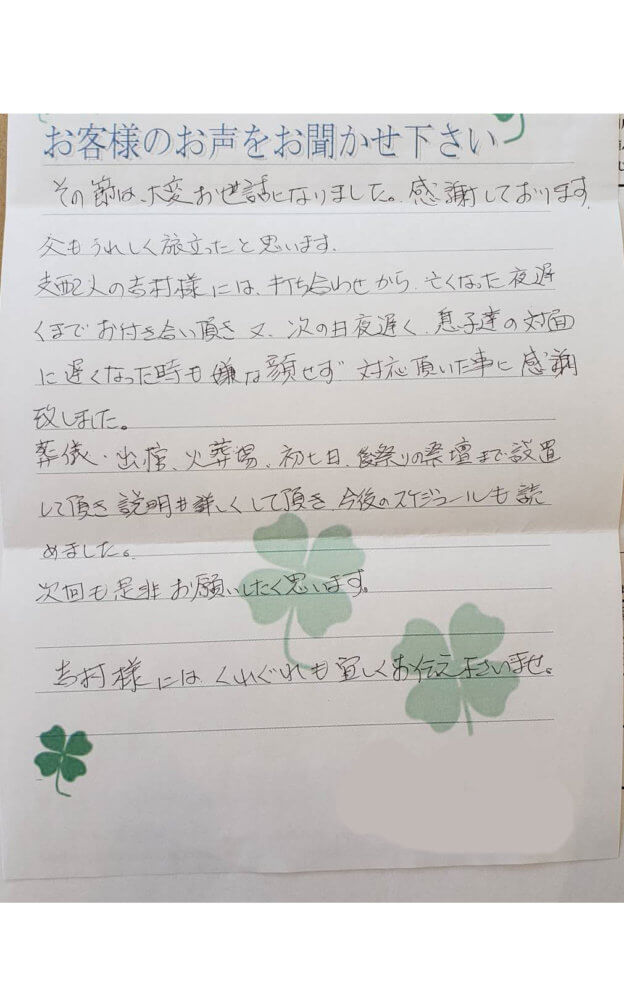 お客様のお声をお聞かせ下さい
その節は、大変お世話になりました。感謝しております。
父もうれしく旅立ったと思います。
支配人の吉村様には、打ち合わせから、亡くなった夜遅
くまでお付き合い頂き又、次の日夜遅く、息子達の対面
に遅くなった時も嫌な顔せず対応頂いた事に感謝
致しました。
葬儀・出棺、火葬場、初七日、後祭りの祭壇まで設置
して頂き説明も詳しくして頂き、今後のスケジュールも読
めました。
次回も是非お願いしたく思います。
吉村様には、くれぐれも宜しくお伝え下さいませ。